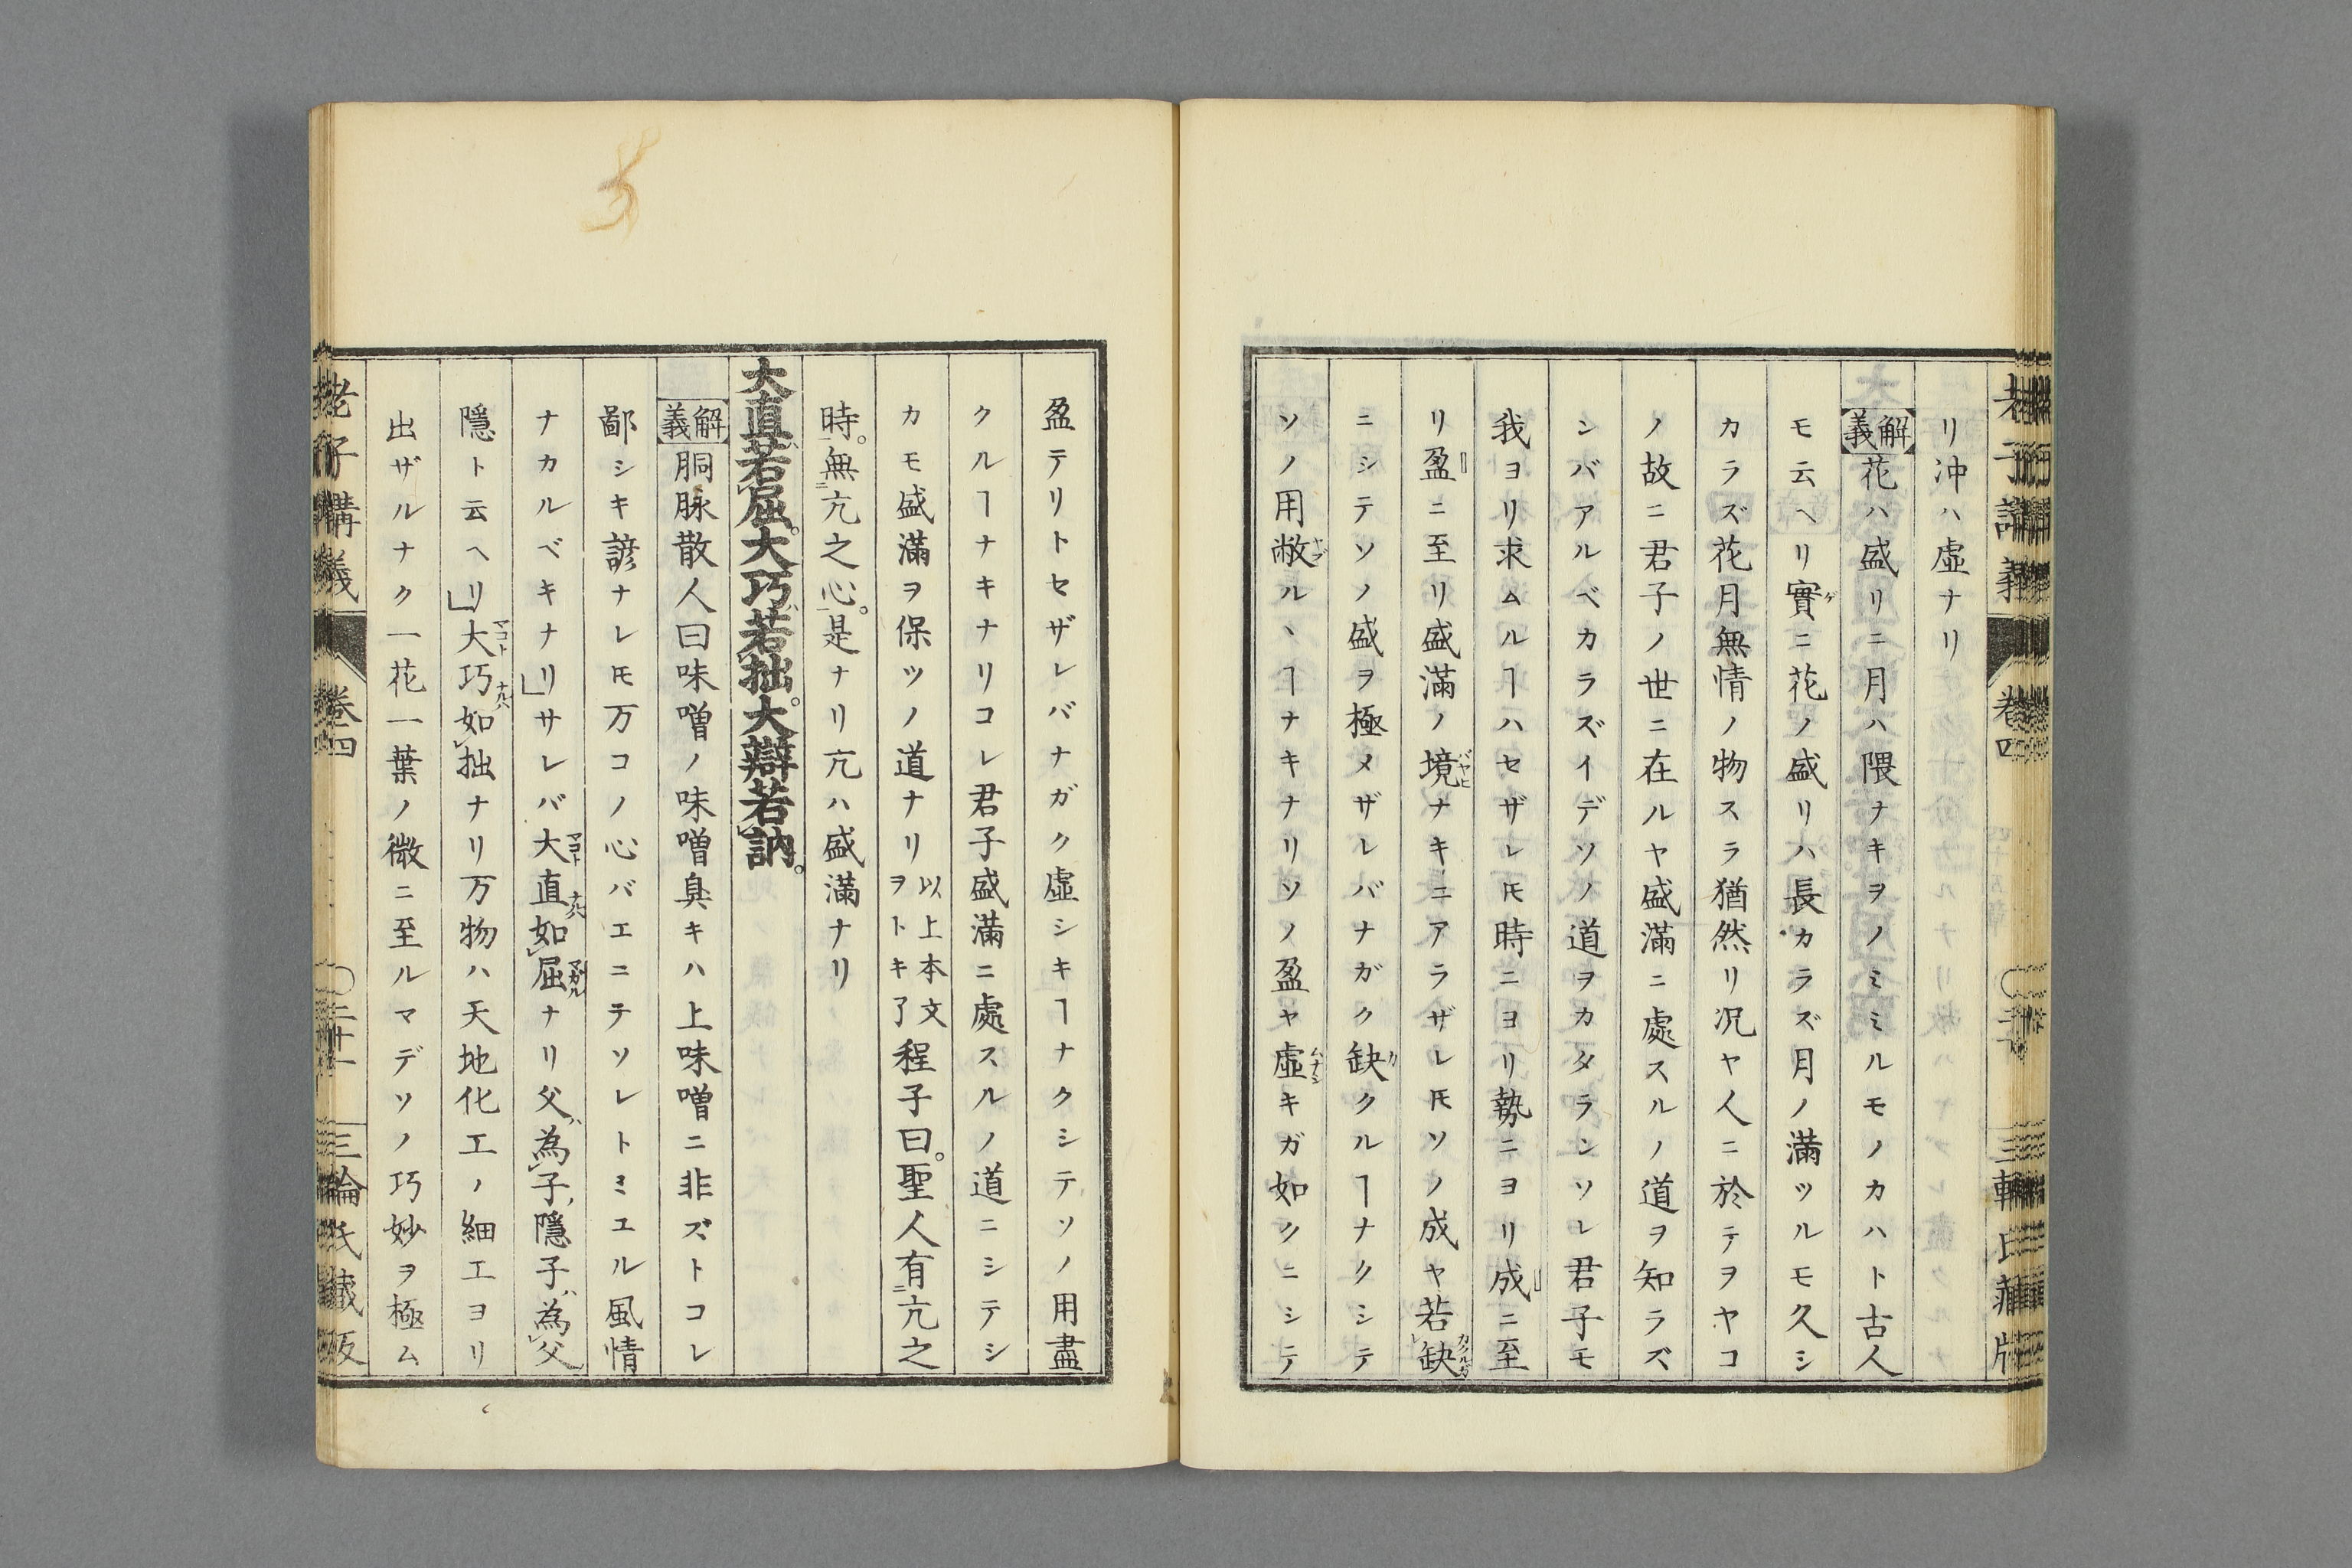 リ冲ハ虛ナリ
解義 花ハ盛リニ月ハ隈ナキヲノミミルモノカハト古人
モ云ヘリ實ニ花ノ盛リハ長カラズ月ノ滿ツルモ久シ
カラズ花月無情ノ物スラ猶然リ况ヤ人ニ於テヲヤコ
ノ故ニ君子ノ世ニ在ルヤ盛滿ニ處スルノ道ヲ知ラズ
シバアルベカラズイデソノ道ヲカタランソレ君子モ
我ヨリ求ムルヿハセザレㇳモ時ニヨリ勢ニヨリ成ニ至
リ盈ニ至リ盛滿ノ境ナキニアラザレㇳモソノ成ヤ若缺
ニシテソノ盛ヲ極メザレバナガク缺クルヿナクシテ
ソノ用敝ルヽヿナキナリソノ盈ヤ虛キガ如クニシテ
盈テリトセザレバナガク虛シキヿナクシテソノ用盡
クルヿナキナリコレ君子盛滿ニ處スルノ道ニシテシ
カモ盛滿ヲ保ツノ道ナリ以上本文ヲトキ了程子曰。聖人有亢之
時。無亢之心。是ナリ亢ハ盛滿ナリ
大直若屈。大巧若拙。大辯若訥。
解義 胴脉散人曰味噌ノ味噌臭キハ上味噌ニ非ズトコレ
鄙シキ諺ナレㇳモ万コノ心バエニテソレトミエル風情
ナカルベキナリ」サレバ大直如屈ナリ父為子隱子為父
隱ト云ヘリ」大巧如拙ナリ万物ハ天地化工ノ細工ヨリ
出ザルナク一花一葉ノ微ニ至ルマデソノ巧妙ヲ極ム
老子講義 卷四